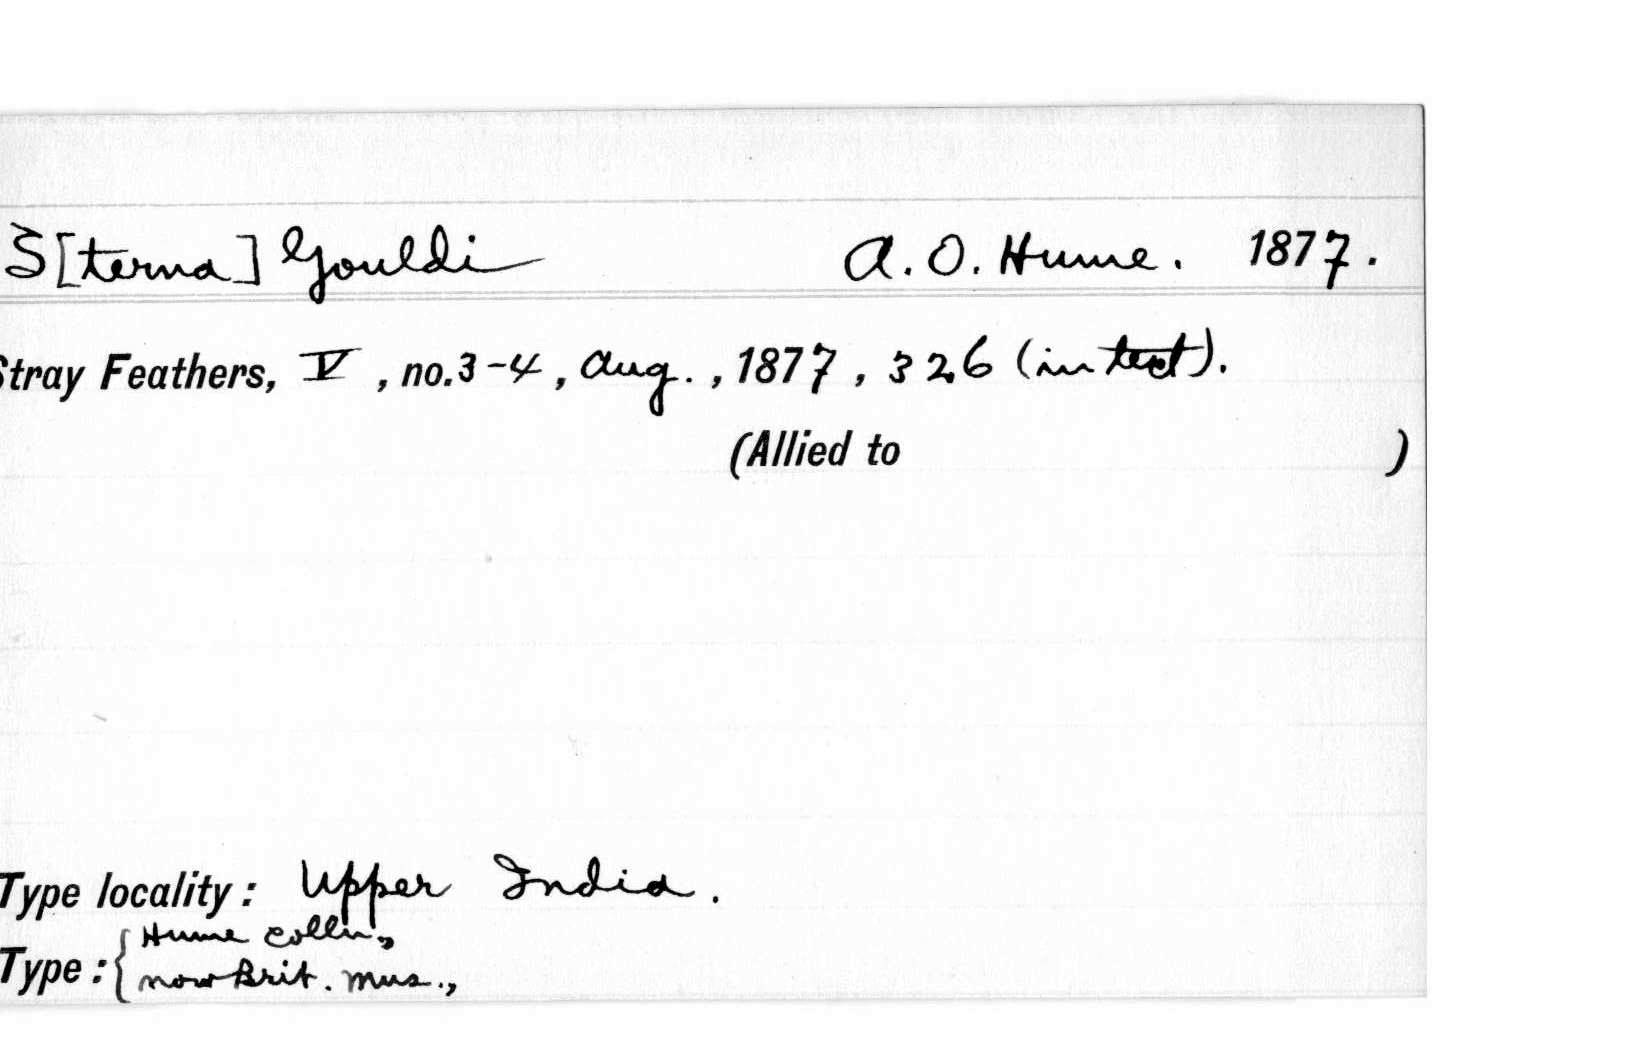 S[terna] Gouldi A. O. Hume. 1877.
Stray Feathers, V, no. 3-4, Aug., 1877, 326 (in text).
(Allied to )
Type locality: Upper India.
Type: { Hume Colln.,
now Brit. Mus.,